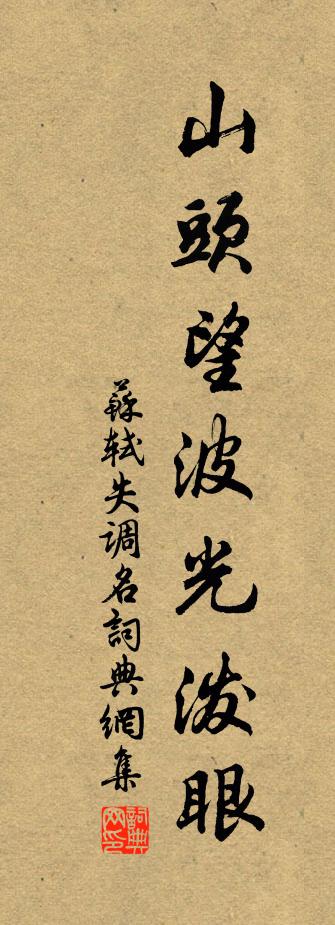 山頭望波光泼眼
蘇轼失调名詞典網集
詞典网印